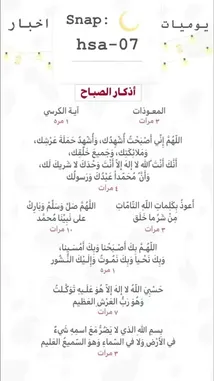 اخبار
Snap:
يوميات
hsa-07
أذكار الصباح
المعوذات
٣ مرات
آية الكرسي
١ مره
اللَّهُمَّ إِنِّي أَصْبَحْتُ أُشْهِدُكَ، وَأُشْهِدُ حَمَلَةَ عَرْشِكَ،
وَمَلَائِكَتَكَ، وَجَمِيعَ خَلْقِكَ،
أَنَّكَ أَنْتَ اللَّهُ لَا إِلَهَ إِلَّا أَنْتَ وَحْدَكَ لَا شَرِيكَ لَكَ،
وَأَنَّ مُحَمَّداً عَبْدُكَ وَرَسُولُكَ
٤ مرات
أَعوذُ بكَلِماتِ اللَّهِ التَّامَّاتِ
مِنْ شَرِّ ما خَلَق
٣ مرات
اللَّهُمَّ صَلِّ وَسَلِّمْ وَبَارِكْ
على نَبِيِّنَا مُحمَّد
١٠ مرات
اللَّهُمَّ بِكَ أَصْبَحْنا وَبِكَ أَمْسَيْنا،
وَبِكَ نَحْيا وَبِكَ نَمُوتُ وَإِلَيْكَ النُّشُور
١ مره
حَسْبِيَ اللَّهُ لا إلهَ إلاّ هُوَ عَلَيْهِ تَوَكَّلْتُ
وَهُوَ رَبُّ العَرْشِ العَظيم
٧ مرات
بِسمِ اللهِ الذي لا يَضُرُّ مَعَ اسمِهِ شَيءٌ
في الأرْضِ وَلا في السّماءِ وَهوَ السّميعُ العَليم
٣ مرات